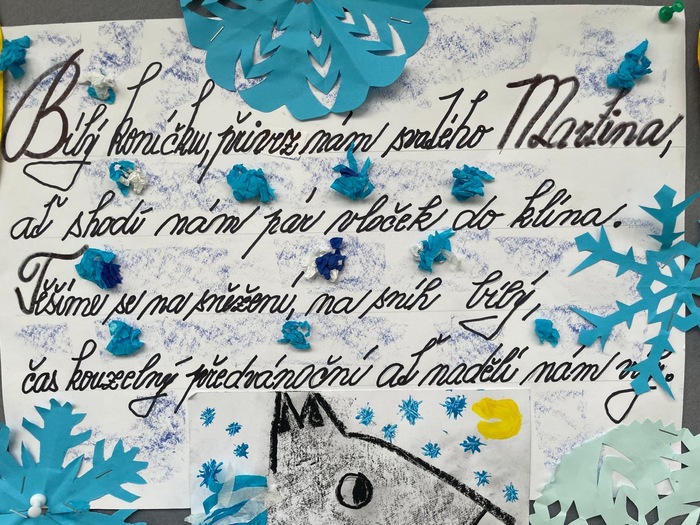 Bílý koníčku, přivez nám svatého Martina,
ať shodí nám pár vloček do klína.
Těšíme se na sněžení, na sníh bílý,
čas kouzelný předvánoční ať nadělí nám